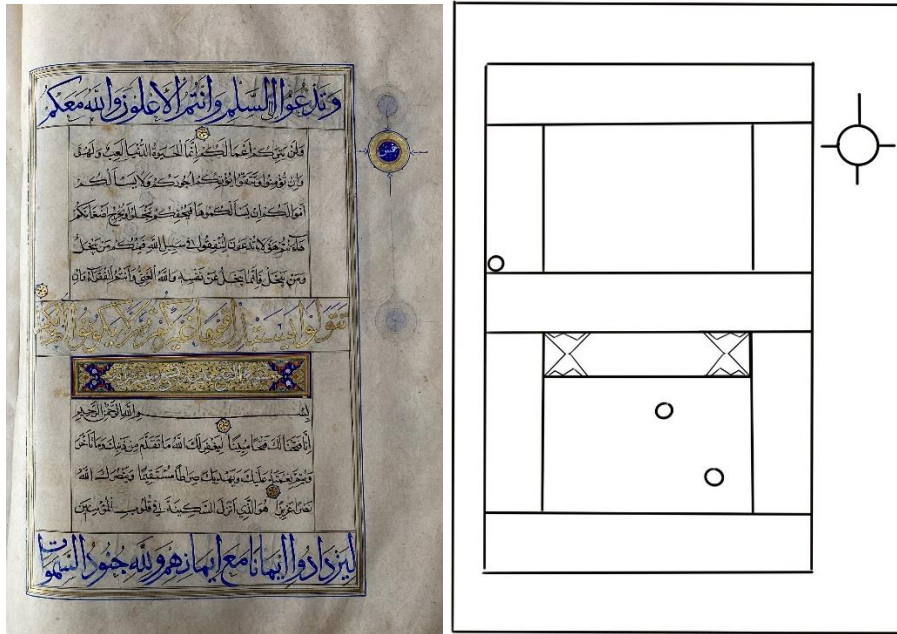 وتدعوا الى السلم وانتم الاعلون والله معكم
خمس
ولن يتركم اعمالكم انما الحيوة الدنيا لعب ولهو
وان تؤمنوا وتتقوا يؤتكم اجوركم ولا يسألكم
اموالكم ان يسألكموها فيحفكم تبخلوا ويخرج اضغانكم
هاانتم هؤلاء تدعون لتنفقوا في سبيل الله فمنكم من يبخل
ومن يبخل فانما يبخل عن نفسه والله الغني وانتم الفقراء وان
تتولوا يستبدل قوما غيركم ثم لا يكونوا امثالكم
بسم الله الرحمن الرحيم
انا فتحنا لك فتحا مبينا ليغفر لك الله ما تقدم من ذنبك وما تأخر
ويتم نعمته عليك ويهديك صراطا مستقيما وينصرك الله
نصرا عزيزا هو الذي انزل السكينة في قلوب المؤمنين
ليزدادوا ايمانا مع ايمانهم ولله جنود السموات